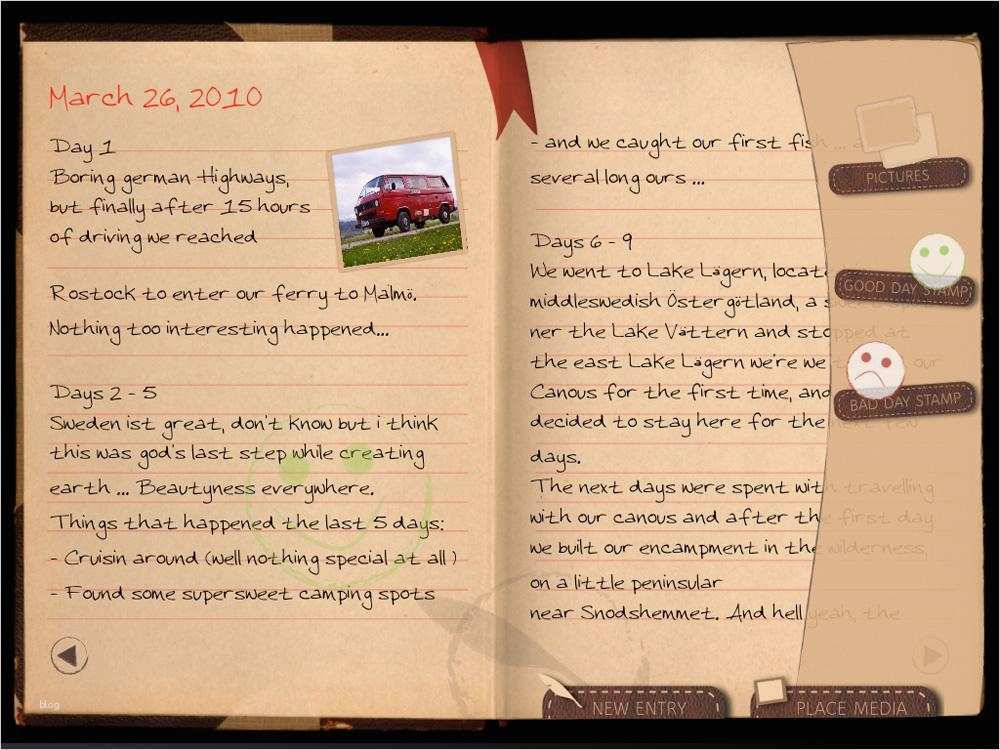 March 26, 2010
Day 1
Boring german Highways,
but finally after 15 hours
of driving we reached
Rostock to enter our ferry to Malmö.
Nothing too interesting happened...
Days 2 - 5
Sweden ist great, don't know but i think
this was god's last step while creating
earth ... Beautyness everywhere.
Things that happened the last 5 days:
- Cruisin around (well nothing special at all )
- Found some supersweet camping spots
blog
- and we caught our first fish ...
several long ours ...
Days 6 - 9
We went to Lake Lägern,
middleswedish Östergötland, a
ner the Lake Vättern and stopped at
the east Lake Lägern we're we our
Canous for the first time, and
decided to stay here for the next few
days.
The next days were spent with travelling
with our canous and after the first day
we built our encampment in the wilderness,
on a little peninsular
near Snodshemmet. And hell yeah, the
PICTURES
GOOD DAY STAMP
BAD DAY STAMP
NEW ENTRY
PLACE MEDIA